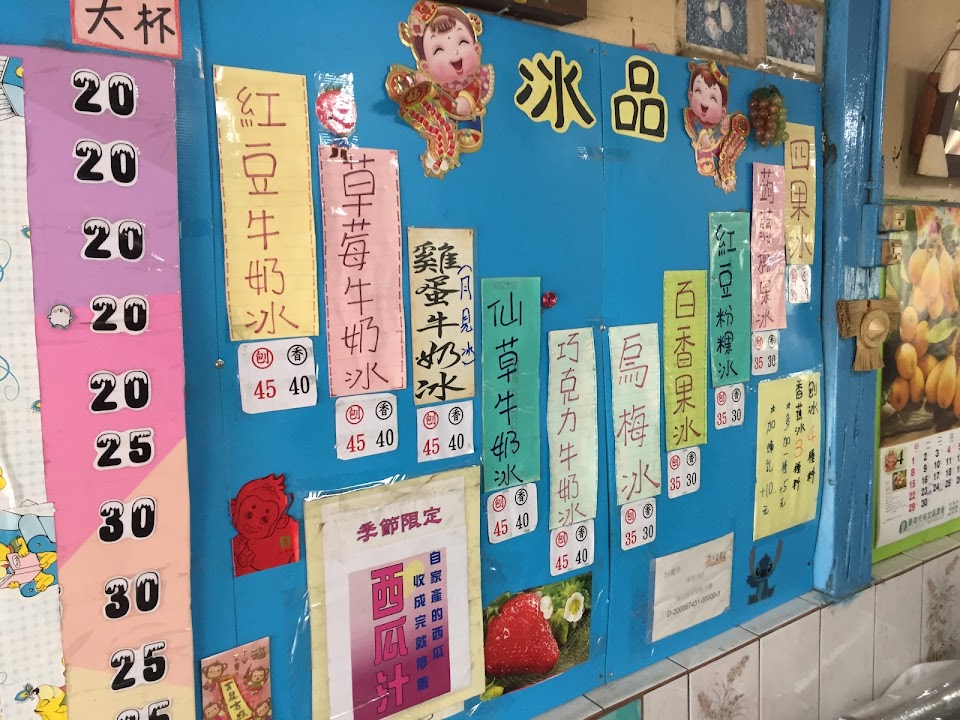 大杯
20
20
20
20
20
25
30
30
25
冰品
紅豆牛奶冰
刨 香
45 40
草莓牛奶冰
刨 香
45 40
雞蛋牛奶冰
(月見冰)
刨 香
45 40
仙草牛奶冰
刨 香
45 40
巧克力牛奶冰
刨 香
45 40
烏梅冰
刨 香
35 30
百香果冰
刨 香
35 30
紅豆粉粿冰
刨 香
35 30
刨 香
35 30
四果冰
刨冰4種料
香蕉冰3種料
*多加一種+5元
*加煉乳+10元
季節限定
西瓜汁
自家產的西瓜
收成完就停賣
D-200067431-00000-1
4